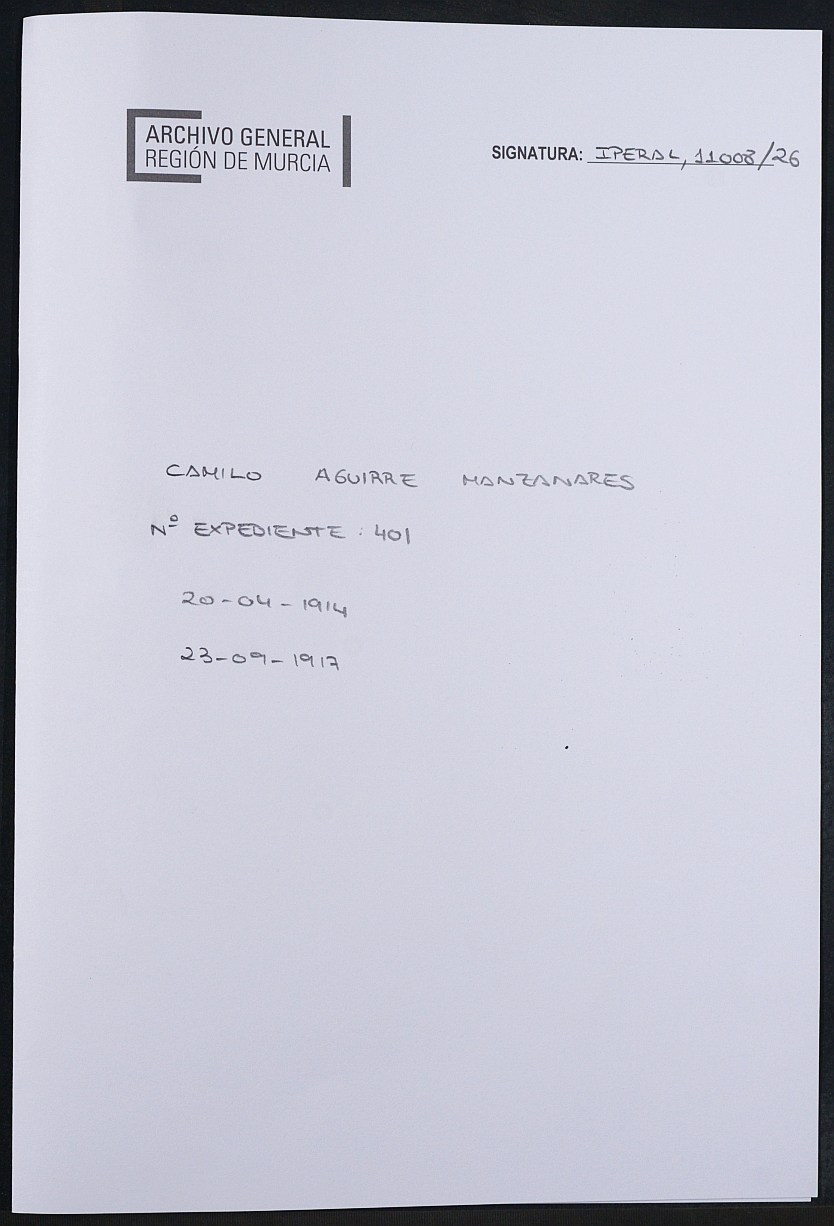 ARCHIVO GENERAL
REGIÓN DE MURCIA
SIGNATURA: IPERAL, 11008/26
CAMILO AGUIRRE MANZANARES
Nº EXPEDIENTE: 401
20-04-1914
23-09-1917